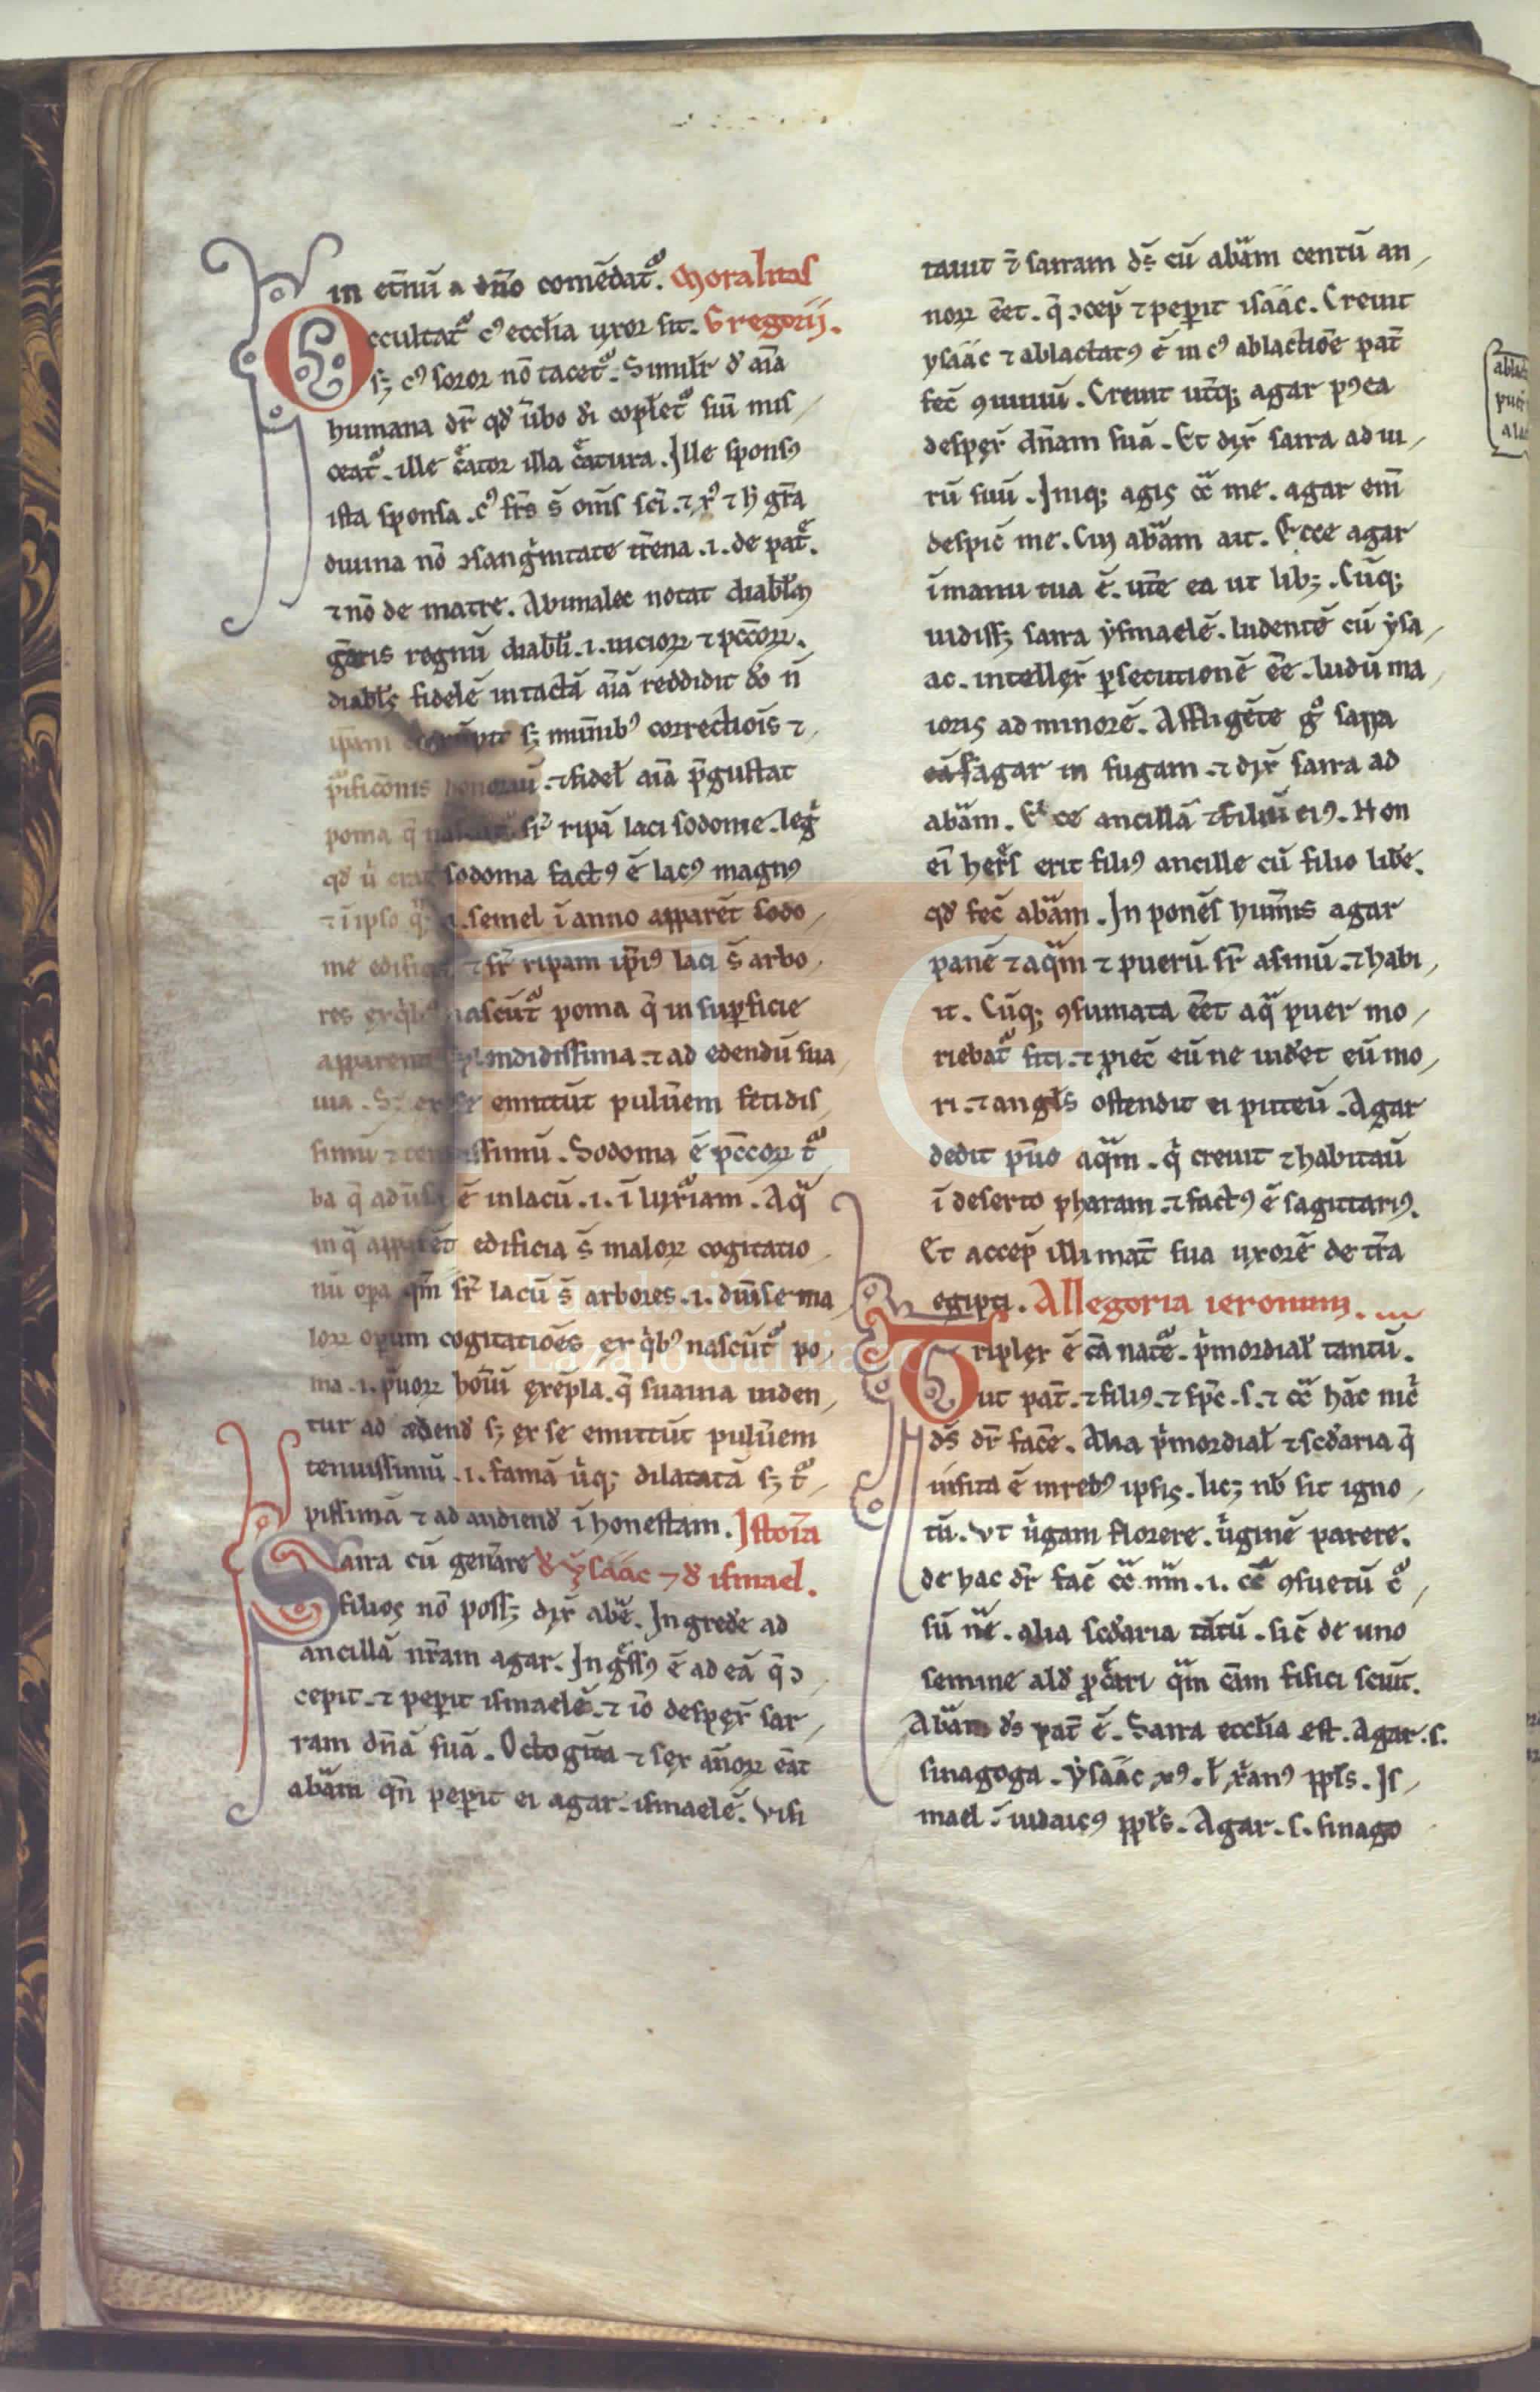 in et̄nū a dn̄o comēdat᷑. Moralitas
Occultat᷑ cꝰ eccl̄ia uxor sit. Gregorij.
sꝫ cꝰ soror nō tacet᷑. Similr̄ đ aīa
humana dr̄ qđ ūbo dī coplet᷑ siū mis
ceat᷑. ille c̄ator illa c̄atura. Ille sponsꝰ
ista sponsa. cꝰ frs̄ s̄ om̄s sc̄i. ⁊ xꝰ ⁊ h̄ gr̄a
diuina nō ꝯsang̍nitate tr̄ena .i. de pat̄.
⁊ nō de matre. Abimalec notat diabl̄m
regnū diabl̄i .i. uicioꝝ ⁊ pc̄coꝝ.
diabl̄s fidelē intactā aīā reddidit n̄
sꝫ mun̄ibꝰ correctiōis ⁊
⁊ fidel̄ aīā p̄gustat
poma q̄ sr̄ ripā laci sodome. leg̍
qđ sodoma factꝰ ē lacꝰ magnꝰ
⁊ ī ipso .i. semel ī anno apparēt sodo
me ⁊ sr̄ ripam ip̄iꝰ laci s̄ arbo
res nascūt᷑ poma q̄ in suꝑficie
splendidissima ⁊ ad edendū sua
uia. emittūt puluem̄ fetidis
simū ⁊ Sodoma ē pc̄coꝝ t᷑
ba q̄ ē in lacū .i. ī luxiam̄. Aq̄
in q̄ apparēt edificia s̄ maloꝝ cogitatio
nū oꝑa qm̄ sr̄ lacū s̄ arbores .i. duīse ma
loꝝ opum cogitatiōes ex q̍bꝰ nascūt᷑ po
ma .i. p̄uoꝝ hoīū exep̄la. q̄ suauia uiden
tur ad edenđ sꝫ ex se emittūt puluem̄
tenuissimū .i. famā ūq; dilatatā sꝫ t᷑
pissimā ⁊ ad audienđ ī honestam. Istoīa
Sarra cū gen̄are đ ysaac ⁊ đ ismael.
filios nō possꝫ dix̄ abē. Ingređe ad
ancillā nr̄am agar. Ing̍ssꝰ ē ad eā q̄ ꝯ
cepit. ⁊ peꝑit ismaelē. ⁊ iō despex̄ sar
ram dn̄ā suā. Octogīta ⁊ sex an̄oꝝ eāt
abām qn̄ peꝑit ei agar. ismaelē. Uisi
tauit ⁊̄ sarram ds̄ cū abām centū an
noꝝ eēt. q̄ ꝯcep̄ ⁊ peꝑit isaac. Creuit
ysaac ⁊ ablactatꝰ ē in cꝰ ablactiōe pat̄
fec̄ ꝯuiuiū. Creuit utiq; agar pꝰea
despex̄ dn̄am suā. Et dix̄ sarra ad ui
rū suū. Iniq; agis cc̄ me. agar em̄
despic̄ me. Cui abām ait. Ecce agar
ī manu tua ē. ute ea ut libꝫ. Cūq;
uidissꝫ sarra ysmaelē. ludentē cū ysa
ac. intellex̄ ꝑsecutionē eē. ludū ma
ioris ad minorē. Affligēte g᷑ sarra
agar in fugam. ⁊ dix̄ sarra ad
abām. Eice ancillā ⁊ filiū eiꝰ. Non
eī heres erit filiꝰ ancille cū filio libe.
qđ fec̄ abām. In ponēs hum̄is agar
panē ⁊ aq̄m ⁊ puerū sr̄ asinū. ⁊ habi
it. Cūq; ꝯsumata eēt aq̄ puer mo
riebat᷑ siti. ⁊ ꝓiec̄ eū ne uiđet eū mo
ri. ⁊ angl̄s ostendit ei puteū. Agar
dedit pu̅o aq̄m. q̍ creuit ⁊ habitaū
ī deserto pharam. ⁊ factꝰ ē sagittariꝰ.
Et accep̄ illi mat̄ sua uxorē de tr̄a
egipti. Allegoria ieronimi.
Triplex ē cā nat̄e. p̍mordial̄ tantū.
ut pat̄. ⁊ filiꝰ. ⁊ sp̄c .s. ⁊ cc̄ hāc nic̍
ds̄ dr̄ facē. Alia p̍mordial̄ ⁊ scđaria q̄
insita ē in rebꝰ ipsis. licꝫ nb̄ sit igno
tū. ut ūgam florere. ūginē parere.
de hac dr̄ fac̄ cc̄ nm̄ .i. cc̄ ꝯsuetū c᷑
sū n̄e. alia scđaria tātū. sic̄ de uno
semine alđ ꝓcāri qm̄ cām fisici sciūt.
Abām ds̄ pat̄ ē. Sarra eccl̄ia est. Agar .s.
sinagoga. ysaac xꝰ. l̄ xānꝰ ppl̄s. Is
mael ē iudaicꝰ ppl̄s. Agar .s. sinago